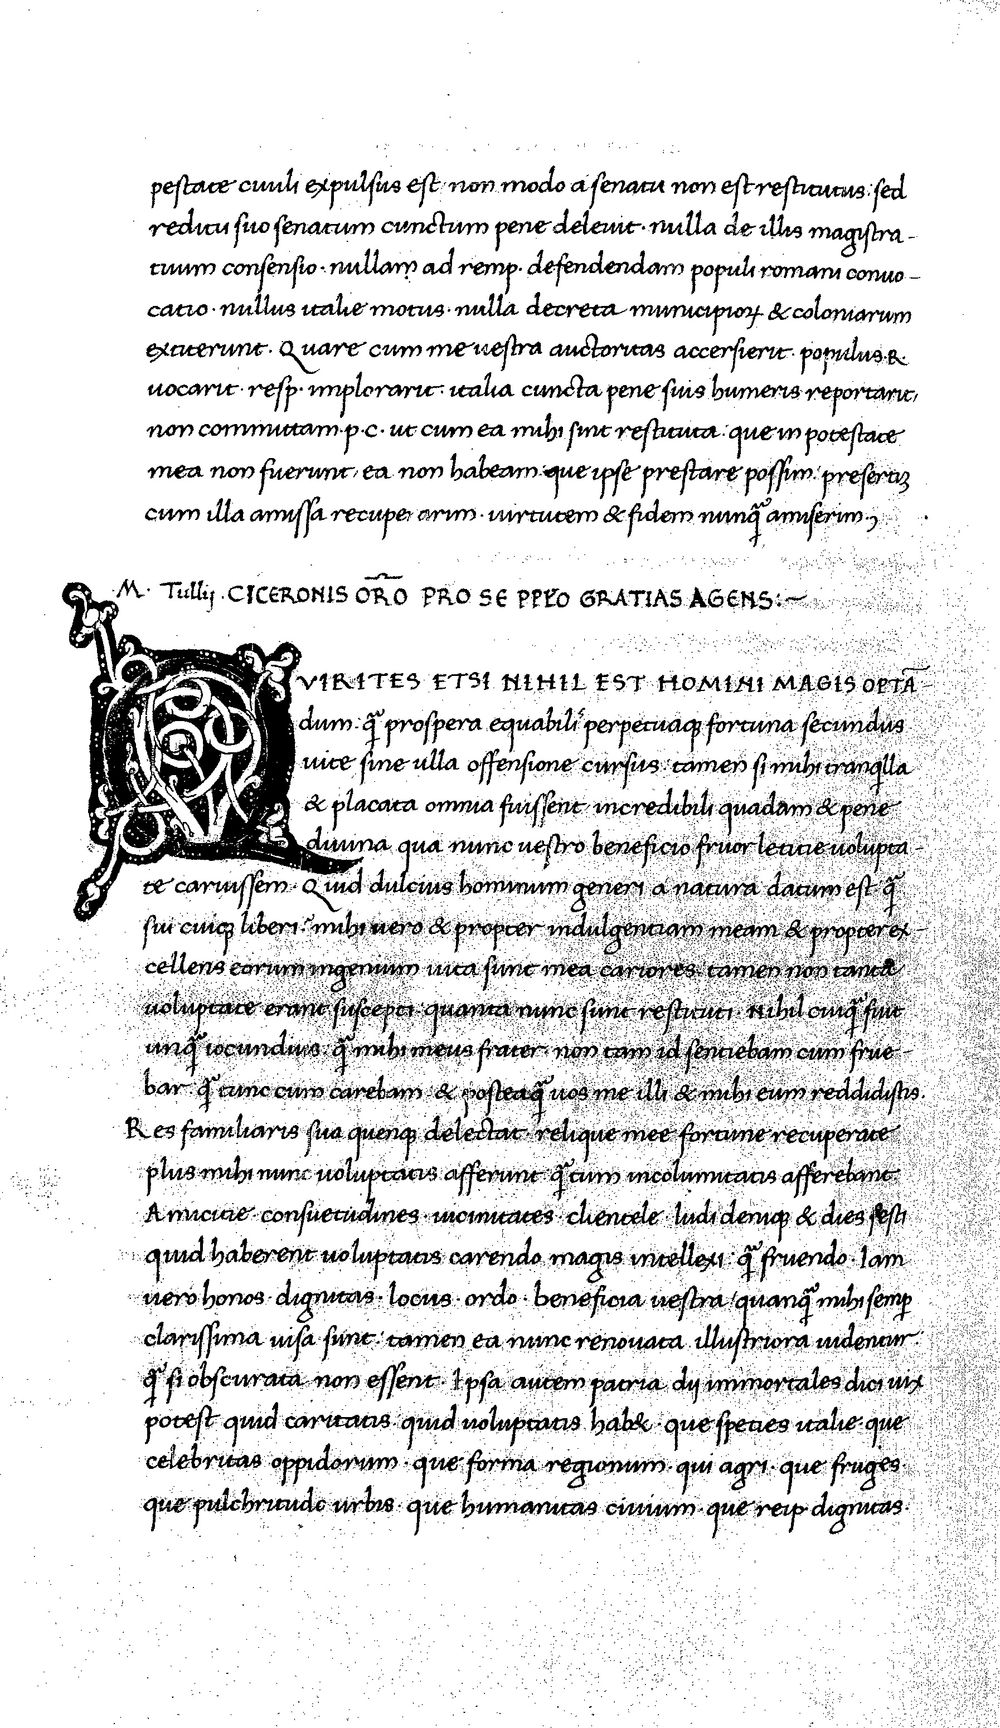 pestate ciuili expulsus est· non modo a senatu non est restitutus· sed
reditu suo senatum cunctum pene deleuit· nulla de illis magistra-
tuum consensio· nullam ad remp· defendendam populi romani conuo-
catio· nullus italie motus· nulla decreta municipioꝝ & coloniarum
extiterunt· Quare cum me uestra auctoritas accersierit· populus·R·
uocarit· resp· implorarit· italia cuncta pene suis humeris reportarit,
non committam·p·c· ut cum ea mihi sint restituta· que in potestate
mea non fuerunt, ea non habeam que ipse prestare possim· presertiꝫ
cum illa amissa recuperarim· uirtutem & fidem nunq̃ amiserim·,
M· Tullij ·CICERONIS OR̃O PRO SE PPŁO GRATIAS AGENS:~
QVIRITES ETSI NIHIL EST HOMINI MAGIS OPTÃ-
dum· q̃ prospera equabili perpetuaqꝫ fortuna secundus
uite sine ulla offensione cursus· tamen si mihi tranq̇lla
& placata omnia fuissent· incredibili quadam & pene
diuina qua nunc uestro beneficio fruor letitie uolupta-
te caruissem· Quid dulcius hominum generi a natura datum est q̃
sui cuiqꝫ liberi· mihi uero & propter indulgentiam meam & propter ex-
cellens eorum ingenium uita sunt mea cariores· tamen non tanta
uoluptate erant suscepti· quanta nunc sunt restituti· Nihil cuiq̃ fuit
unq̃ iocundius· q̃ mihi meus frater· non tam id sentiebam cum frue-
bar· q̃ tunc cum carebam· & posteaq̃ uos me illi & mihi eum reddidistis.
Res familiaris sua quenqꝫ delectat· relique mee fortune recuperate
plus mihi nunc uoluptatis afferunt· q̃ tum incolumitatis afferebant·
Amicitie· consuetudines· uicinitates· clientele· ludi deniqꝫ & dies festi
quid haberent uoluptatis carendo magis intellexi· q̃ fruendo· Iam
uero honos· dignitas· locus· ordo· beneficia uestra· quanq̃ mihi semꝑ
clarissima uisa sunt· tamen ea nunc renouata illustriora uidentur
q̃ si obscurata non essent· Ipsa autem patria dij immortales dici uix
potest quid caritatis· quid uoluptatis hab&· que species italie· que
celebritas oppidorum· que forma regionum· qui agri· que fruges·
que pulchritudo urbis· que humanitas ciuium· que reip· dignitas·